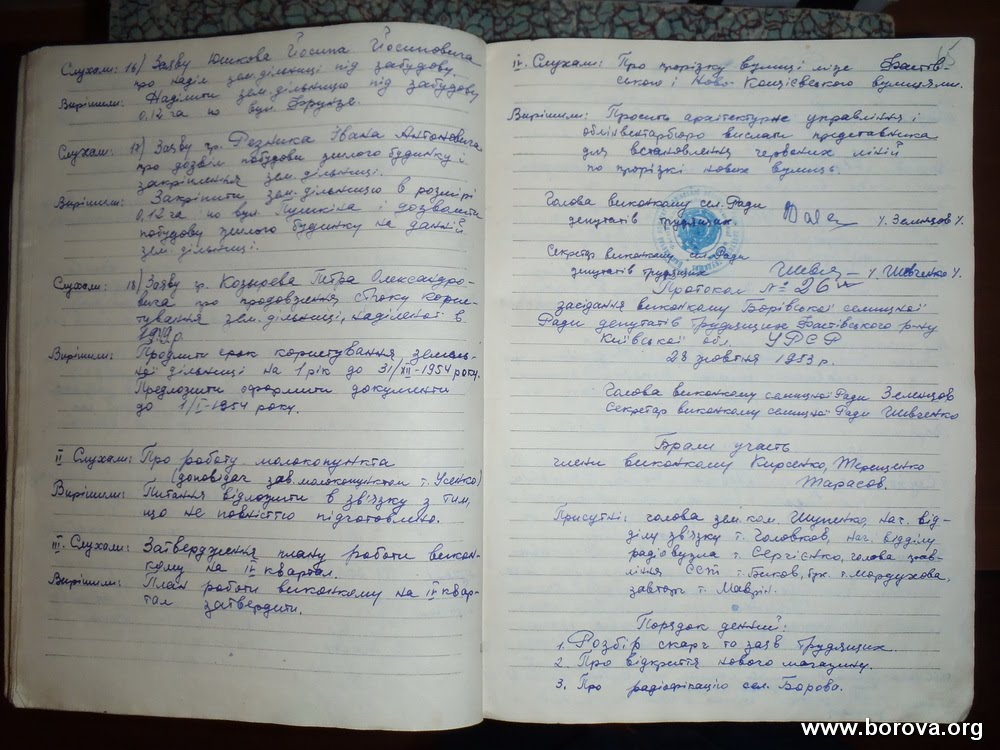 Слухали: 16/ Заяву Юшкова Йосипа Йосиповича
про наділ зем. дільниці під забудову.
Вирішили: Наділити зем. дільницю під забудову
0,12 га по вул. Фрунзе.
Слухали: 17/ Заяву гр. Резника Івана Антоновича
про дозвіл побудови жилого будинку і
закріплення зем. дільниці.
Вирішили: Закріпити зем. дільницю в розмірі
0,12 га по вул. Пушкіна і дозволити
побудову жилого будинку на данній
зем. дільниці.
Слухали: 18/ Заяву гр. Козырева Петра Олександро-
вича про продовження строку корис-
тування зем. дільниці, наділеної в
р.
Вирішили: Продлити срок користування земель-
ної дільниці на 1 рік до 31/XII-1954 року.
Предложити оформити документи
до 1/I-1954 року.
II Слухали: Про роботу молокопункта
(доповідач зав. молокопунктом т. Усенко)
Вирішили: Питання відложити в зв'язку з тим,
що не повністю підготовлено.
III. Слухали: Затвердження плану роботи викон-
кому на IV квартал.
Вирішили: План роботи виконкому на IV квар-
тал затвердити.
15
IV. Слухали: Про прорізку вулиці між Фастів-
ського і Ново-Коцієвського вулицями.
Вирішили: Просить архітектурне управління і
облінвентарбюро вислати представника
для встановлення червоних ліній
по прорізкі нових вулиць.
Голова виконкому сел. Ради
депутатів трудящих /. Зеленцов /.
Секретар виконкому сел. Ради
депутатів трудящих /. Шевченко /.
Протокол № 26
засідання виконкому Борівської селищної
Ради депутатів трудящих Фастівського р-ну
Київської обл. УРСР
28 жовтня 1953 р.
Голова виконкому селищної Ради Зеленцов
Секретар виконкому селищної Ради Шевченко
Брали участь
члени виконкому Кирсенко, Терещенко
Тарасов.
Присутні: голова зем. ком. Шупенко, нач. від-
ділу зв'язку т. Головков, нач. відділу
радіовузла т. Сергієнко, голова прав-
ління т. Биков, гр. т. Мордухова,
завторг т. Маврін.
Порядок денний:
1. Розбір скарг та заяв трудящих.
2. Про відкриття нового магазину.
3. Про радіофікацію сел. Борова.
www.borova.org